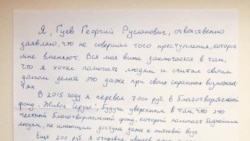 Я, Гуев Георгий Русланович, ответственно
заявляю, что не совершал того преступления, которое
мне вменяют. Вся моя вина заключается в том,
что я хотел помогать людям и считал своим
долгом делать это даже при своих скромных возможностях.
В 2015 году я перевел 700 руб. в Благотворительный
фонд "Живое сердце", будучи уверенным в том, что это
честный благотворительный фонд, который помогает бедным
людям, не имеющим доступа даже к питьевой воде.
Ещё 200 руб. я отправил